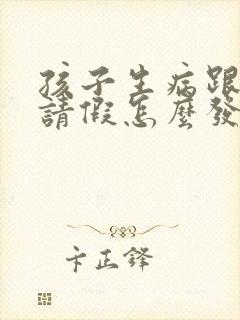 孩子生病跟
請假怎麼發
卞正鋒